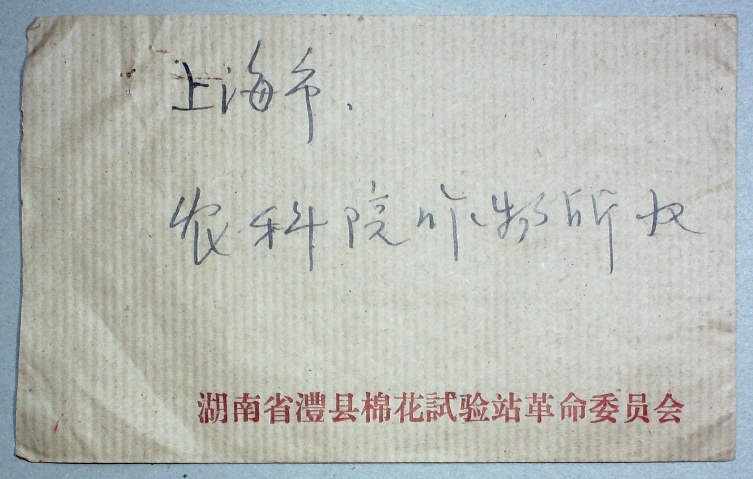 上海市、
农科院作物所收
湖南省澧县棉花試验站革命委员会